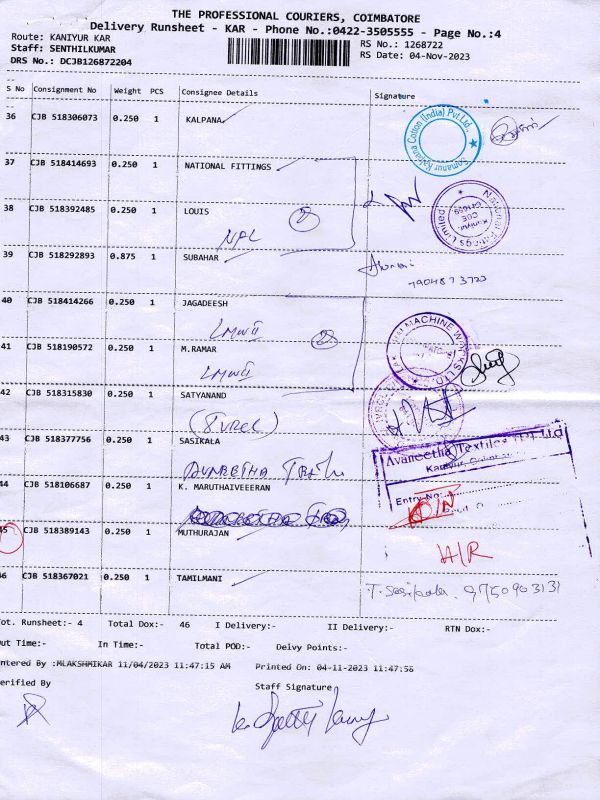 THE PROFESSIONAL COURIERS, COIMBATORE
Delivery Runsheet - KAR - Phone No.:0422-3505555 - Page No.:4
Route: KANIYUR KAR RS No.: 1268722
Staff: SENTHILKUMAR RS Date: 04-Nov-2023
DRS No.: DCJB126872204
S No Consignment No Weight PCS Consignee Details Signature
36 CJB 518306073 0.250 1 KALPANA
Somanur Kalpana Cotton (India) Pvt Ltd.
37 CJB 518414693 0.250 1 NATIONAL FITTINGS
38 CJB 518392485 0.250 1 LOUIS 2
National Fittings Limited
NFL
39 CJB 518292893 0.875 1 SUBAHAR
7904873720
40 CJB 518414266 0.250 1 JAGADEESH
LMW II 2
MACHINE WORKS LTD
41 CJB 518190572 0.250 1 M.RAMAR
LMW II
42 CJB 518315830 0.250 1 SATYANAND
43 CJB 518377756 0.250 1 SASIKALA
Avaneetha Textiles Pvt Ltd
44 CJB 518106687 0.250 1 K. MARUTHAIVEEERAN
Entry No:
45 CJB 518389143 0.250 1 MUTHURAJAN
H/R
46 CJB 518367021 0.250 1 TAMILMANI T. Sasikala 9750903131
Tot. Runsheet:- 4 Total Dox:- 46 I Delivery:- II Delivery:- RTN Dox:-
Out Time:- In Time:- Total POD:- Delvy Points:-
ntered By :MLAKSHMIKAR 11/04/2023 11:47:15 AM Printed On: 04-11-2023 11:47:56
erified By Staff Signature